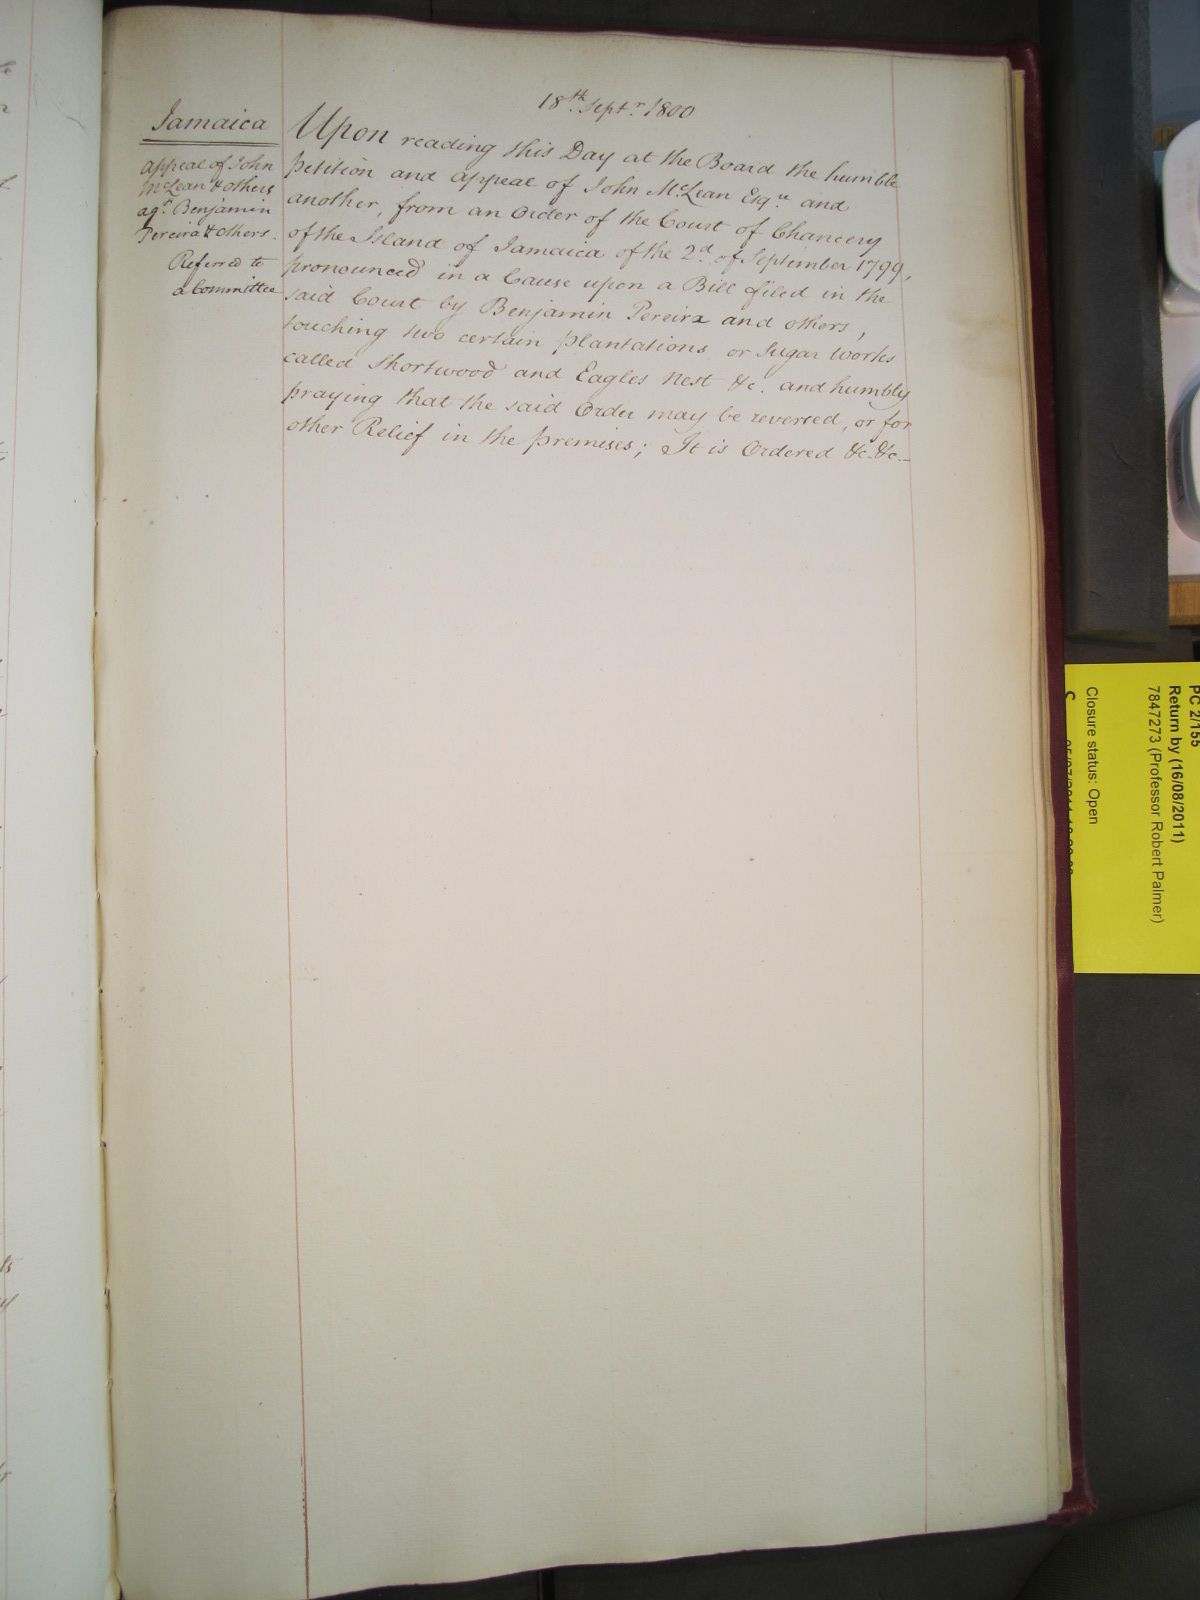 18th Septr 1800
Jamaica
Appeal of John
McLean & others
agt Benjamin
Pereira & Others.
Referred to
a Committee
Upon reading this Day at the Board the humble
petition and appeal of John McLean Esqre and
another, from an Order of the Court of Chancery
of the Island of Jamaica of the 2d of September 1799,
pronounced in a Cause upon a Bill filed in the
said Court by Benjamin Pereira and others,
touching two certain plantations or Sugar Works
called Shortwood and Eagles Nest &c. and humbly
praying that the said Order may be reversed, or for
other Relief in the premises; It is Ordered &c. &c.—
PC 2/155
Return by (16/08/2011)
7847273 (Professor Robert Palmer)
Closure status: Open